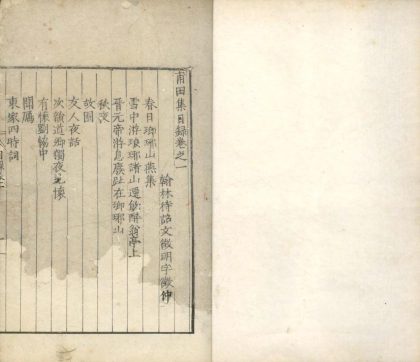 甫田集目録卷之一
翰林待詔文徵明字徵仲
春日瑯琊山燕集
雪中游琅琊諸山還飲醉翁亭上
晉元帝游息廢趾在瑯琊山
秋夜
故園
友人夜話
次韻道卿獨夜見懷
有懷劉協中
聞鴈
東家四時詞